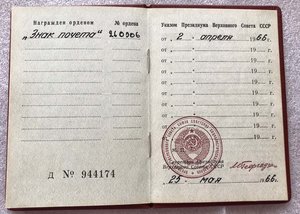 Награжден орденом
№ ордена
„Знак почета“ 260906
Д № 944174
Указом Президиума Верховного Совета СССР
от „ 2 „ апреля 1966г.
от „ „ 19 г.
от „ „ 19 г.
от „ „ 19 г.
от „ „ 19 г.
от „ „ 19 г.
от „ „ 19 г.
Верховного Совета СССР
„25„ мая 1966г.